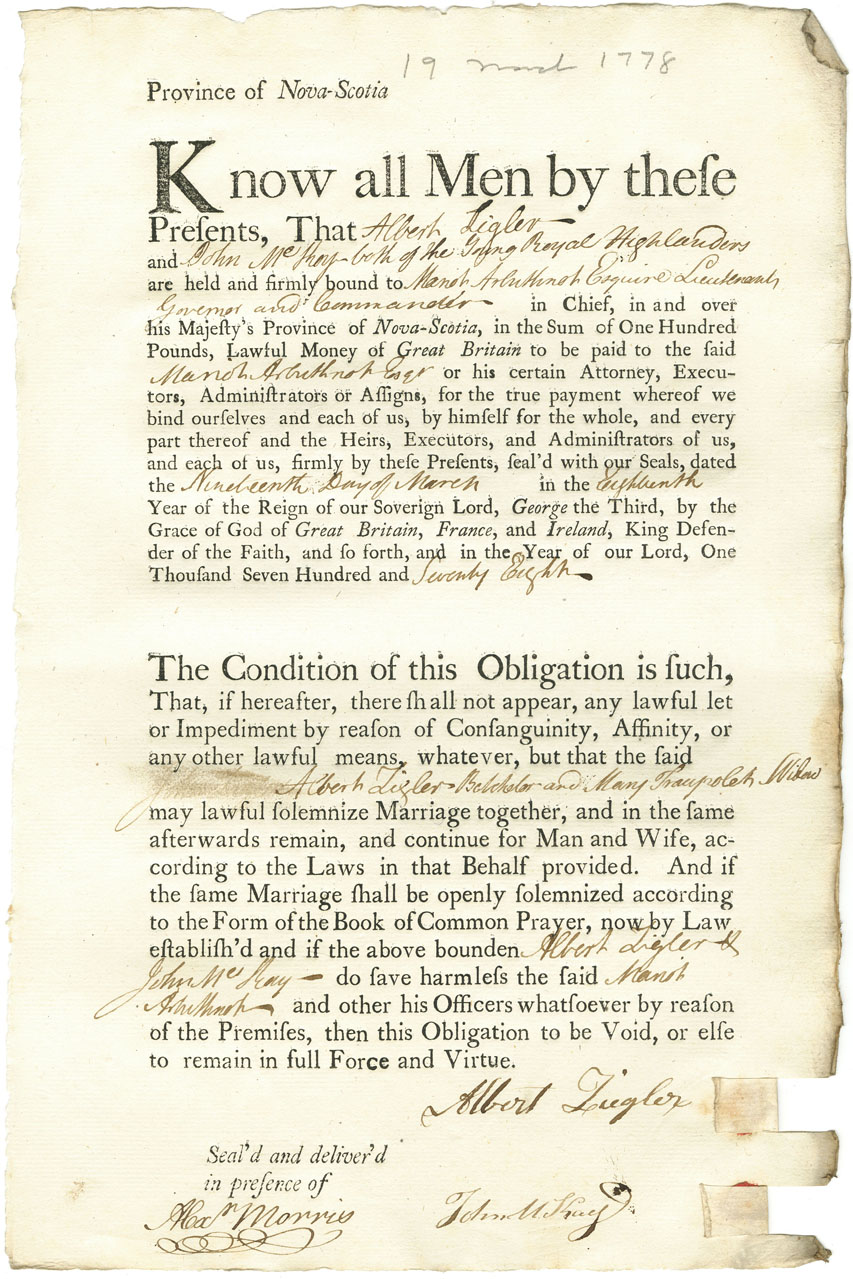 19 March 1778
Province of Nova-Scotia
Know all Men by theſe
Preſents, That Albert Zigler
and John McKay both of the Young Royal Highlanders
are held and firmly bound to Mariot Arbuthnot Esquire Lieutenant
Governor and Commander in Chief, in and over
his Majeſty's Province of Nova-Scotia, in the Sum of One Hundred
Pounds, Lawful Money of Great Britain to be paid to the ſaid
Mariot Arbuthnot Esqr or his certain Attorney, Execu-
tors, Adminiſtrators or Aſſigns, for the true payment whereof we
bind ourſelves and each of us, by himſelf for the whole, and every
part thereof and the Heirs, Executors, and Adminiſtrators of us,
and each of us, firmly by theſe Preſents, ſeal'd with our Seals, dated
the Nineteenth Day of March in the Eighteenth
Year of the Reign of our Soverign Lord, George the Third, by the
Grace of God of Great Britain, France, and Ireland, King Defen-
der of the Faith, and ſo forth, and in the Year of our Lord, One
Thouſand Seven Hundred and Seventy Eight
The Condition of this Obligation is ſuch,
That, if hereafter, there ſhall not appear, any lawful let
or Impediment by reaſon of Conſanguinity, Affinity, or
any other lawful means, whatever, but that the ſaid
Albert Zigler Batchelor and Mary Widow
may lawful ſolemnize Marriage together, and in the ſame
afterwards remain, and continue for Man and Wife, ac-
cording to the Laws in that Behalf provided. And if
the ſame Marriage ſhall be openly ſolemnized according
to the Form of the Book of Common Prayer, now by Law
eſtabliſh'd and if the above bounden Albert Zigler &
John McKay do ſave harmleſs the ſaid Mariot
Arbuthnot and other his Officers whatſoever by reaſon
of the Premiſes, then this Obligation to be Void, or elſe
to remain in full Force and Virtue.
Albert Ziegler
Seal'd and deliver'd
in preſence of
Alexr Morris
John McKay